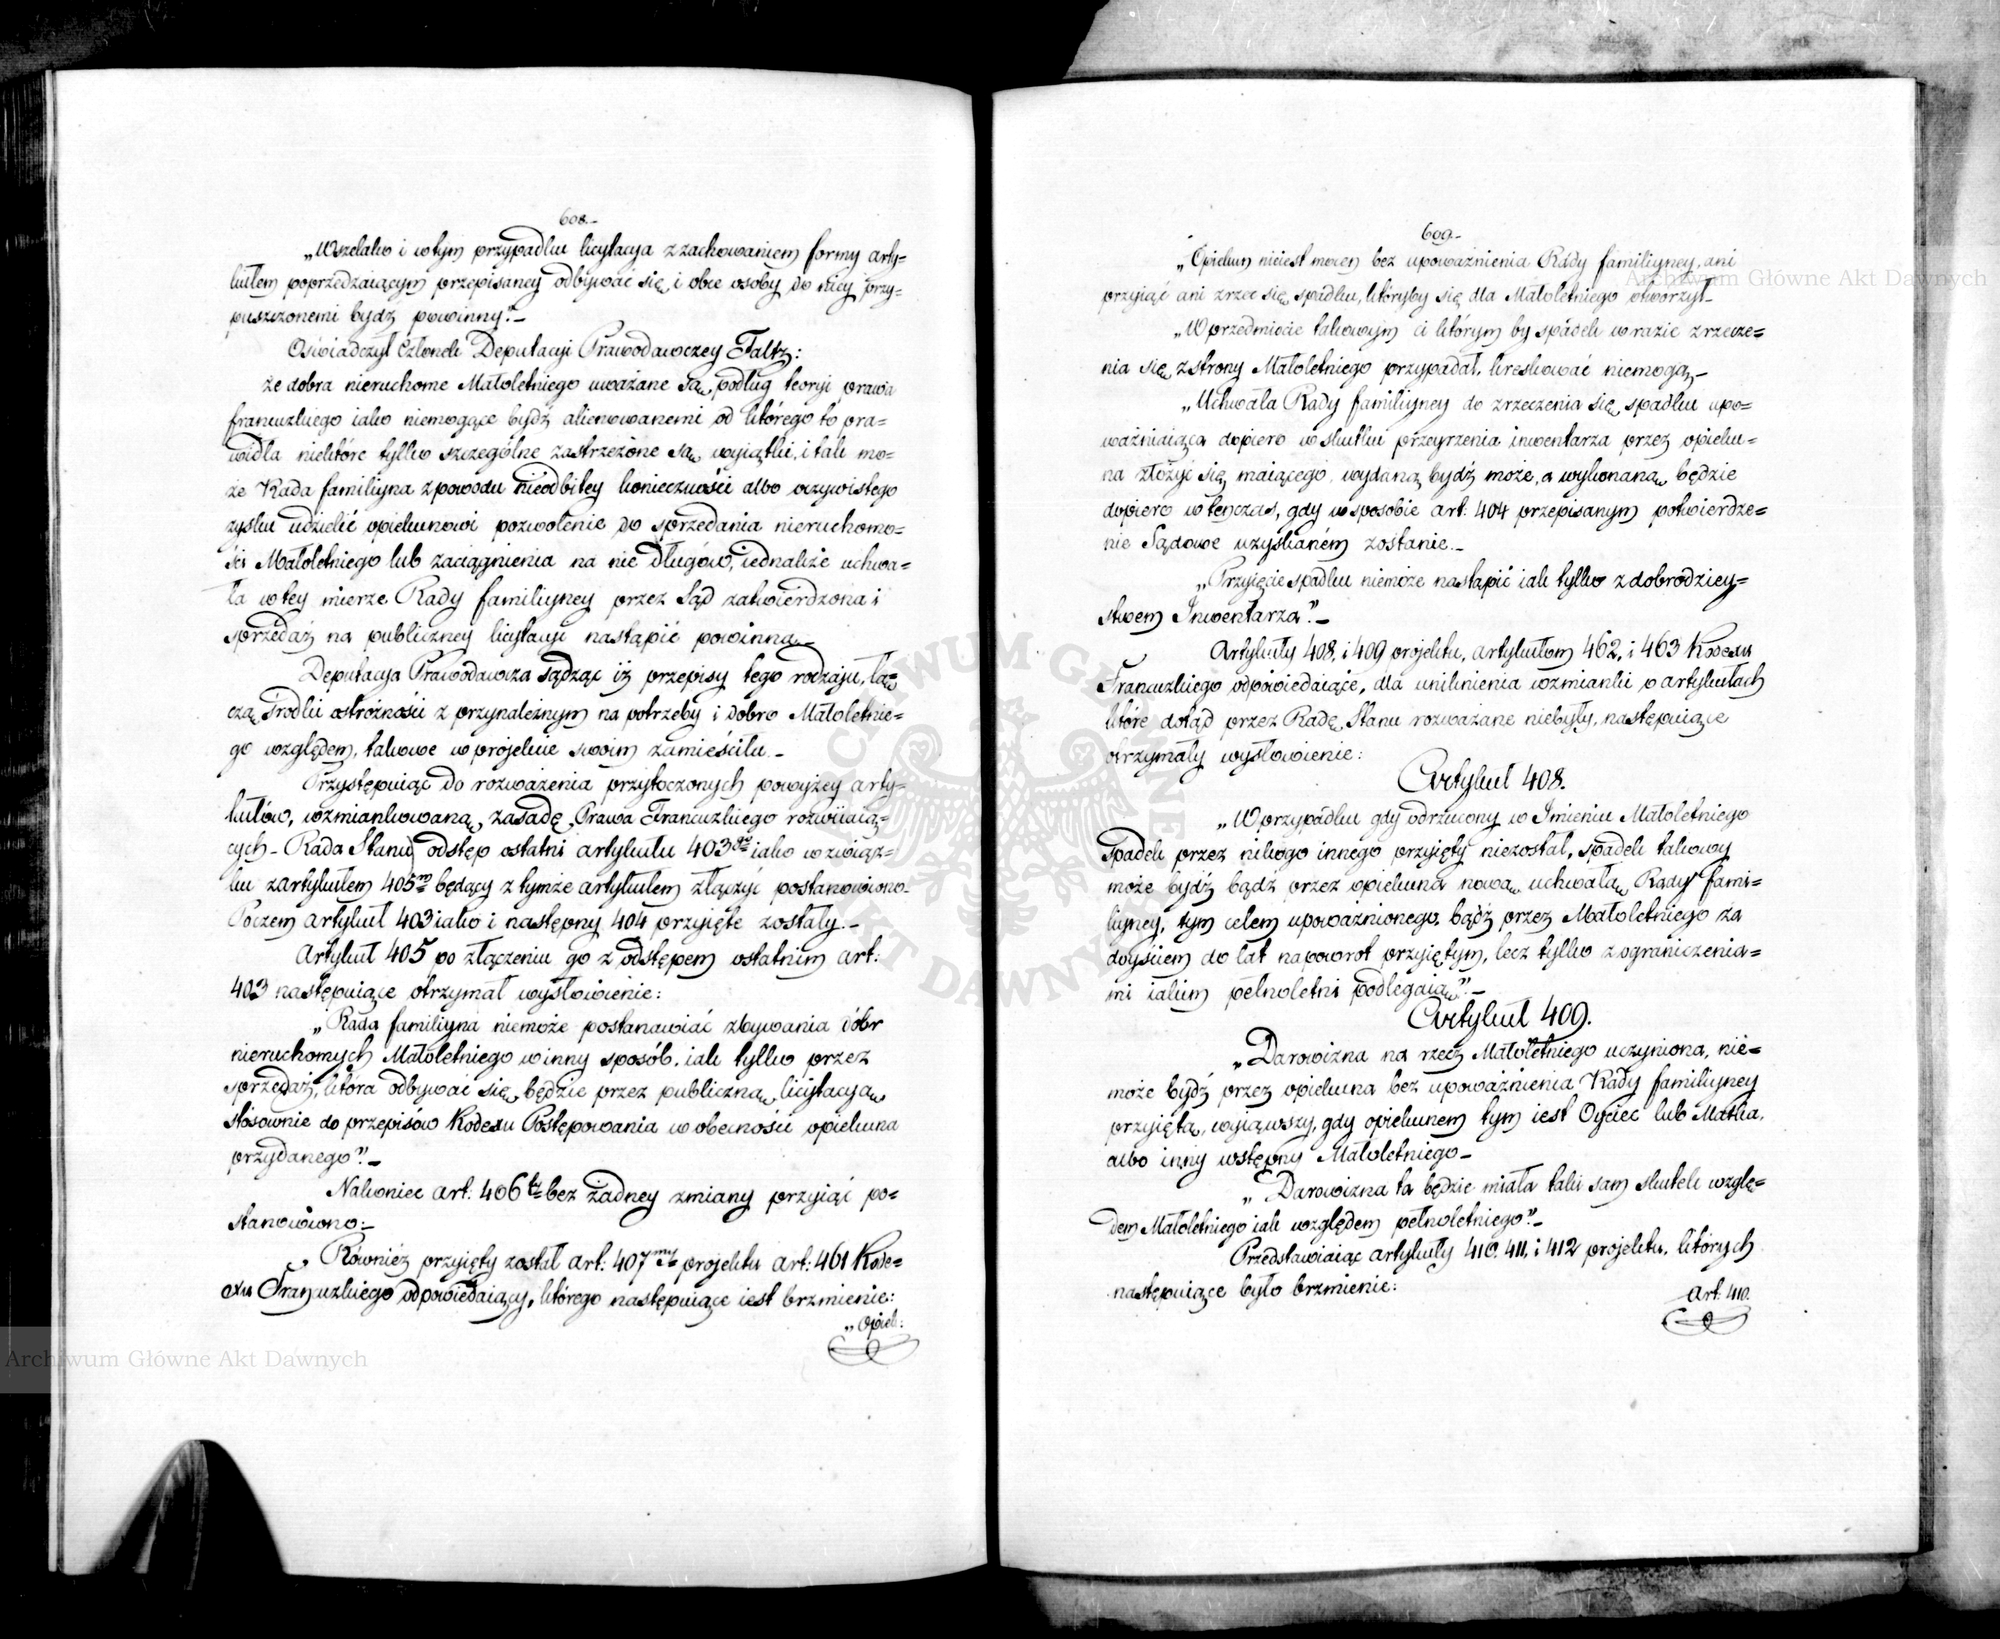 608.
„Wszelako i w tym przypadku licytacya z zachowaniem formy arty=
kułem poprzedzaiącym przepisaney odbywać się, i obce osoby do niey przy=
puszczonemi bydź powinny.”
Oświadczył Członek Deputacyi Prawodawczey Faltz:
że dobra nieruchome Małoletniego uważane są, podług teoryi prawa
francuzkiego iako niemogące bydź alienowanemi od którego to pra=
widła niektóre tylko szczególne zastrzeżone są, wyiątki, i tak mo=
że Rada familiyna z powodu nieodbitey konieczności albo oczywistego
zysku udzielić opiekunowi pozwolenie do sprzedania nieruchomo=
ści Małoletniego lub zaciągnienia na nie długów, iednakże uchwa=
ła w tey mierze Rady familiyney przez Sąd zatwierdzona i
sprzedaż na publiczney licytacyi nastąpić powinna.
Deputacya Prawodawcza sądząc iż przepisy tego rodzaju, łą=
czą środki ostrożności z przynależnym na potrzeby i dobro Małoletnie=
go względem, takowe w projekcie swoim zamieściła.
Przystępuiąc do rozważenia przytoczonych powyżey arty=
kułów, wzmiankowaną, zasadę, Prawa Francuzkiego rozwiiaią=
cych - Rada Stanu odstęp ostatni artykułu 403go iako w związ=
ku z artykułem 405m będący z tymże artykułem złączyć postanowiono
Poczem artykuł 403 iako i następny 404 przyięte zostały.
Artykuł 405 po złączeniu go z odstępem ostatnim art:
403 następuiące otrzymał wysłowienie:
„Rada familiyna niemoże postanawiać zbywania dóbr
nieruchomych Małoletniego w inny sposób, iak tylko przez
sprzedaż, która odbywać się, będzie przez publiczną, licytacyą,
stosownie do przepisów Kodexu Postępowania w obecności opiekuna
przydanego”.
Nakoniec art: 406ty bez żadney zmiany przyiąć po=
stanowiono:
Również przyięty został art: 407my projektu art: 461 Kode=
xu Francuzkiego odpowiedaiący, którego następuiące iest brzmienie:
„Opiek:
609.
„Opiekun nieiest mocen bez upoważnienia Rady familiyney, ani
przyiąć ani zrzec się, spadku, któryby się dla Małoletniego otworzył
„W przedmiocie takowym ci którym by spadek w razie zrzecze=
nia się, z strony Małoletniego przypadał, kreskować niemogą,
„Uchwała Rady familiyney do zrzeczenia się, spadku upo=
ważniaiąca dopiero w skutku przeyrzenia inwentarza przez opieku=
na złożyć się maiącego, wydaną bydź może, a wykonaną, będzie
dopiero w tenczas, gdy w sposobie art: 404 przepisanym potwierdze=
nie Sądowe uzyskaném zostanie.
„Przyięcie spadku niemoże nastąpić iak tylko z dobrodziey=
stwem Inwentarza”.
Artykuły 408, i 409 projektu, artykułom 462, i 463 Kodexu
Francuzkiego odpowiedaiące, dla uniknienia wzmianki o artykułach
które dotąd przez Radę, Stanu rozważane niebyły, następuiące
otrzymały wysłowienie:
Artykuł 408.
„W przypadku gdy odrzucony w Imieniu Małoletniego
spadek przez nikogo innego przyięty niezostał, spadek takowy
może bydź bądź przez opiekuna nową, uchwałą, Rady fami=
liyney, tym celem upoważnionego, bądź przez Małoletniego za
doyściem do lat napowrót przyiętym, lecz tylko z ograniczenia=
mi iakim pełnoletni podlegaią”.
Artykuł 409.
„Darowizna na rzecz Małoletniego uczyniona, nie=
może bydź przez opiekuna bez upoważnienia Rady familiyney
przyiętą, wyiąwszy, gdy opiekunem tym iest Oyciec lub Matka,
albo inny wstępny Małoletniego
„Darowizna ta będzie miała taki sam skutek wzglę=
dem Małoletniego iak względem pełnoletniego”.
Przedstawiaiąc artykuły 410. 411. i 412 projektu, których
następuiące było brzmienie:
Art. 410.
Archiwum Główne Akt Dawnych
Archiwum Główne Akt Dawnych
ARCHIWUM GŁÓWNE AKT DAWNYCH